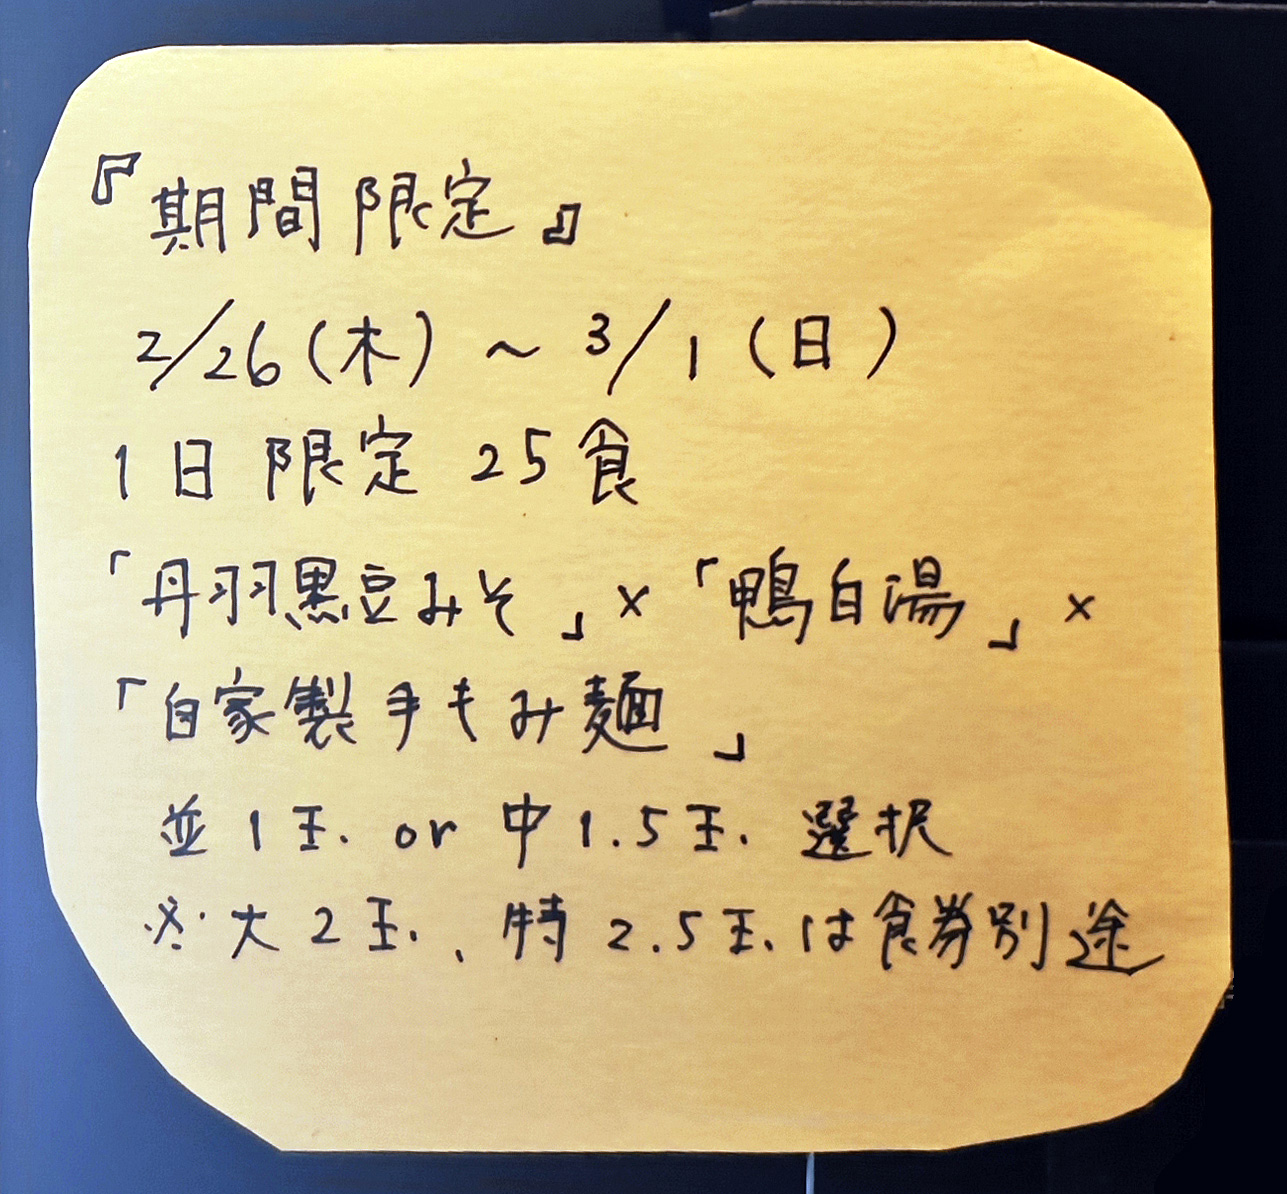 『期間限定』
2/26(木)～3/1(日)
1日限定 25食
「丹羽黒豆みそ」×「鴨白湯」×
「自家製手もみ麺」
並1玉 or 中1.5玉 選択
※大2玉、特2.5玉は食券別途